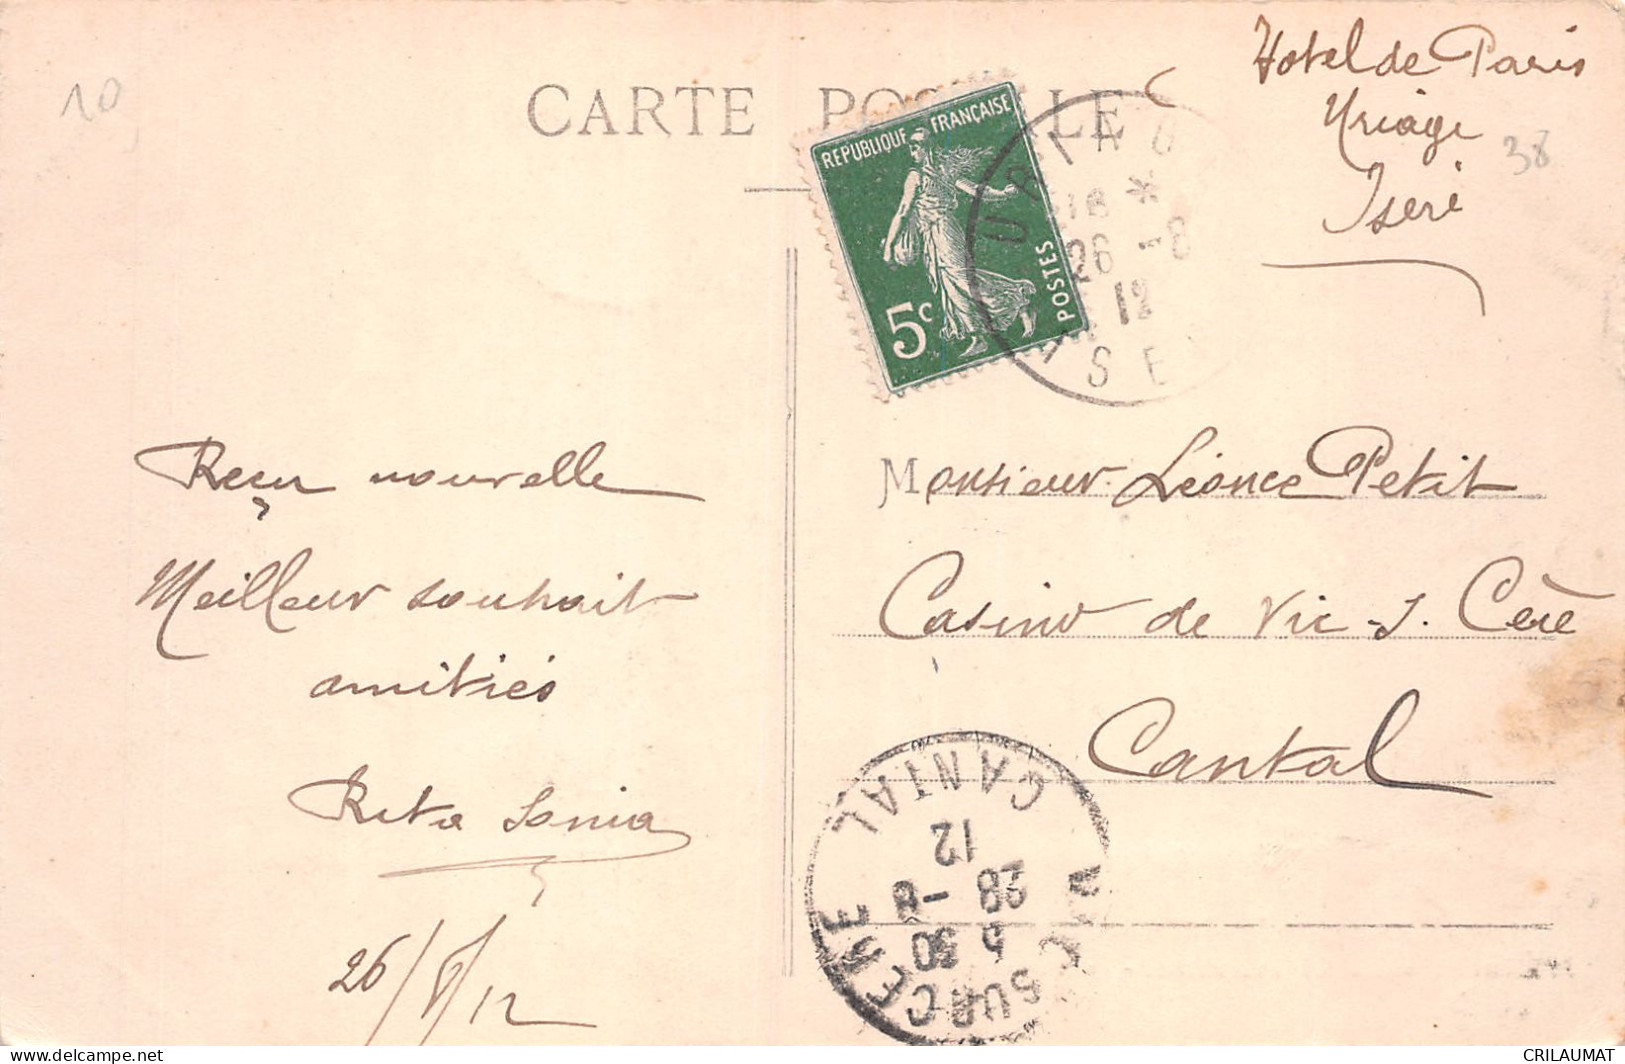 10
CARTE POSTALE
Hotel de Paris
Uriage
Isère
38
REPUBLIQUE FRANÇAISE
POSTES
5c
URIAG
*
26 -8
12
ISE
Reçu nouvelle
Meilleur souhait
amitiés
Rita Sonia
26/8/12
Monsieur Léonce Petit
Casino de Vic-s. Cère
Cantal
VIC SUR CERE
5 30
28 -8
12
CANTAL
delcampe.net
CRILAUMAT